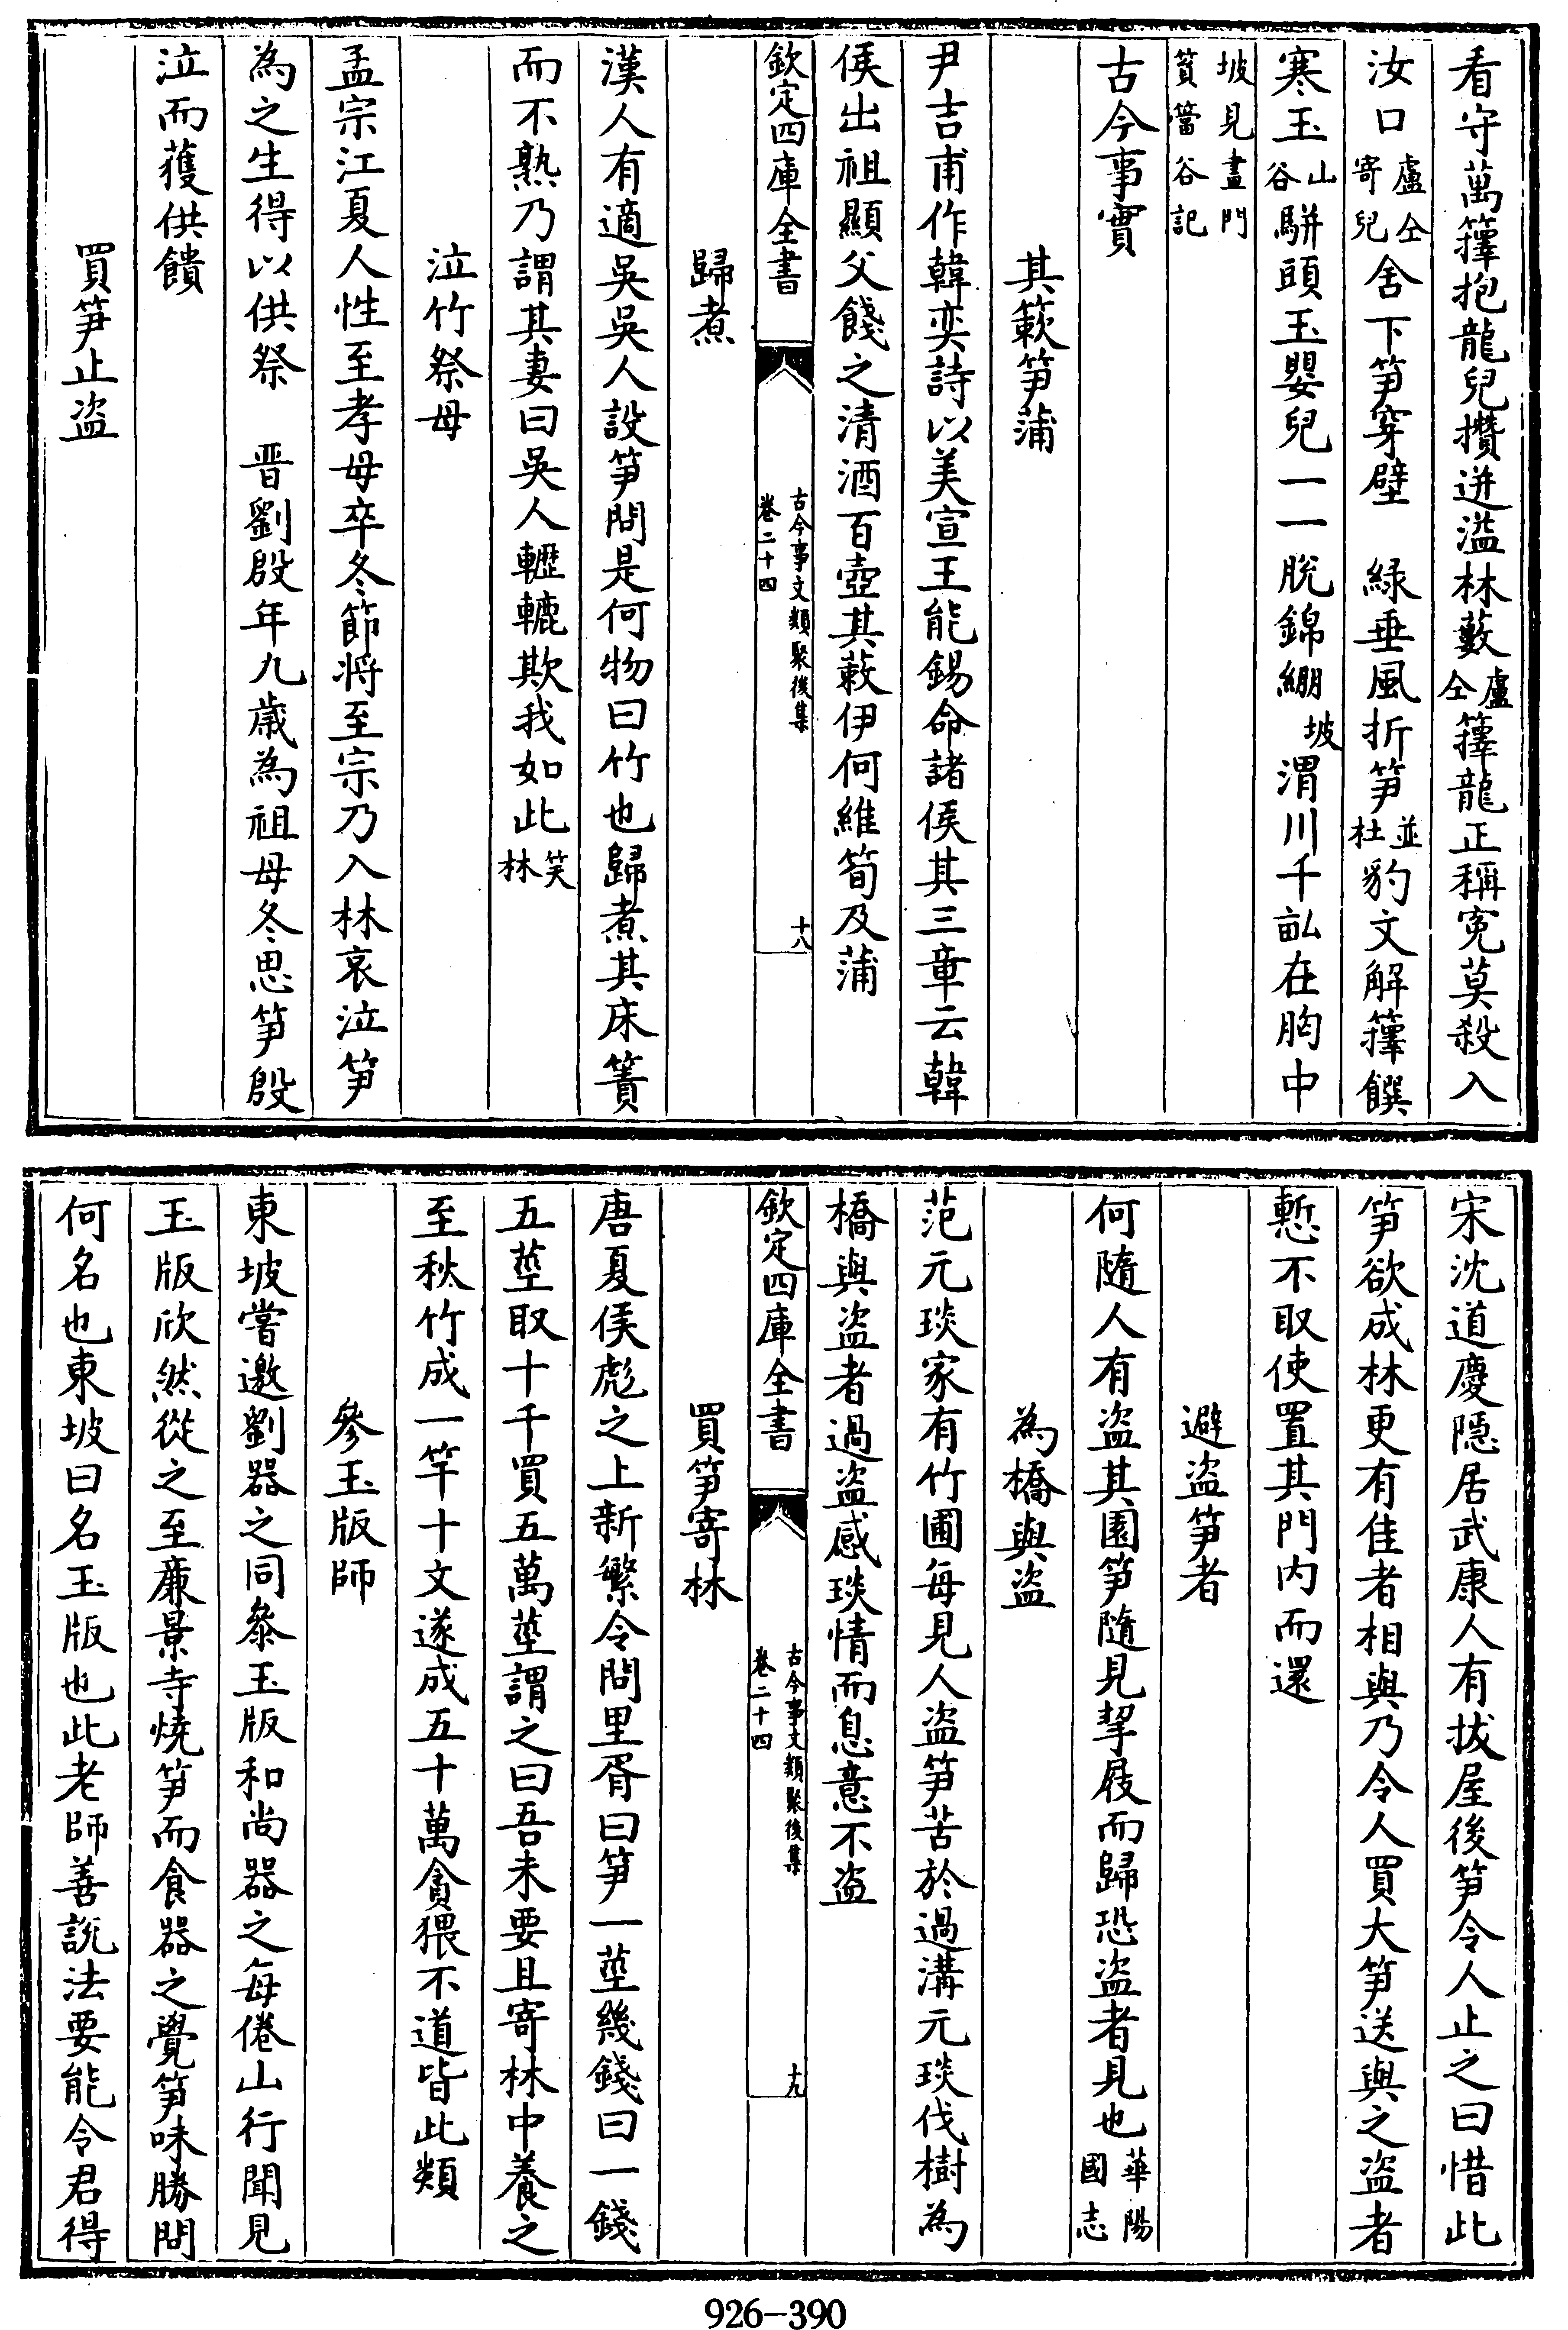 看守萬籜抱龍兒攢迸溢林藪盧仝籜龍正稱寃莫殺入
汝口盧仝寄兒舍下笋穿壁　緑垂風折笋並杜豹文解籜饌
寒玉山谷駢頭玉嬰兒一一脫錦綳坡渭川千畝在胸中
坡見畫門篔簹谷記
古今事實
其蔌笋蒲
尹吉甫作韓奕詩以美宣王能錫命諸侯其三章云韓
侯出祖顯父餞之清酒百壺其蔌伊何維筍及蒲
欽定四庫全書
古今事文類聚後集
卷二十四
十八
歸煮
漢人有適吳吳人設笋問是何物曰竹也歸煮其床簀
而不熟乃謂其妻曰吳人轣轆欺我如此笑林
泣竹祭母
孟宗江夏人性至孝母卒冬節將至宗乃入林哀泣笋
為之生得以供祭　晋劉殷年九歳為祖母冬思笋殷
泣而獲供饋
買笋止盜
宋沈道慶隠居武康人有拔屋後笋令人止之曰惜此
笋欲成林更有佳者相與乃令人買大笋送與之盜者
慙不取使置其門内而還
避盜笋者
何隨人有盜其園笋隨見挈屐而歸恐盜者見也華陽國志
為橋與盜
范元琰家有竹圃每見人盜笋苦於過溝元琰伐樹為
橋與盜者過盜感琰情而息意不盜
欽定四庫全書
古今事文類聚後集
卷二十四
十九
買笋寄林
唐夏侯彪之上新繁令問里胥曰笋一莖幾錢曰一錢
五莖取十千買五萬莖謂之曰吾未要且寄林中養之
至秋竹成一竿十文遂成五十萬貪猥不道皆此類
參玉版師
東坡嘗邀劉器之同叅玉版和尚器之每倦山行聞見
玉版欣然從之至廉景寺燒笋而食器之覺笋味勝問
何名也東坡曰名玉版也此老師善說法要能令君得
926-390